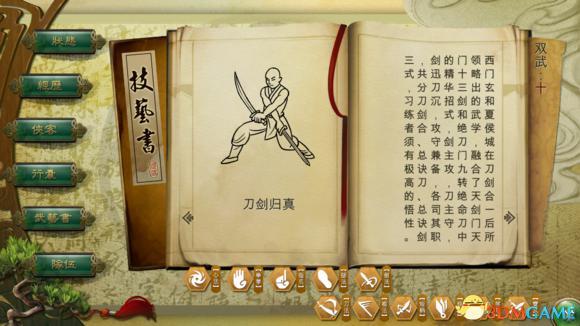 狀態
經歷
俠客
行囊
武藝書
隊伍
技藝書
刀剑归真
双武：十
西门玄和夏侯城在刀剑合一后所
领略出的武学，融合了天剑门天
门十三剑和绝刀门九转绝命刀中
的精华招式，剑主攻，刀主守，
剑迅刀沉，攻守兼备，各司其职
，共分刀剑合、总诀刀、总诀剑
三式，习练者须有极高的悟性。
3DMGAME